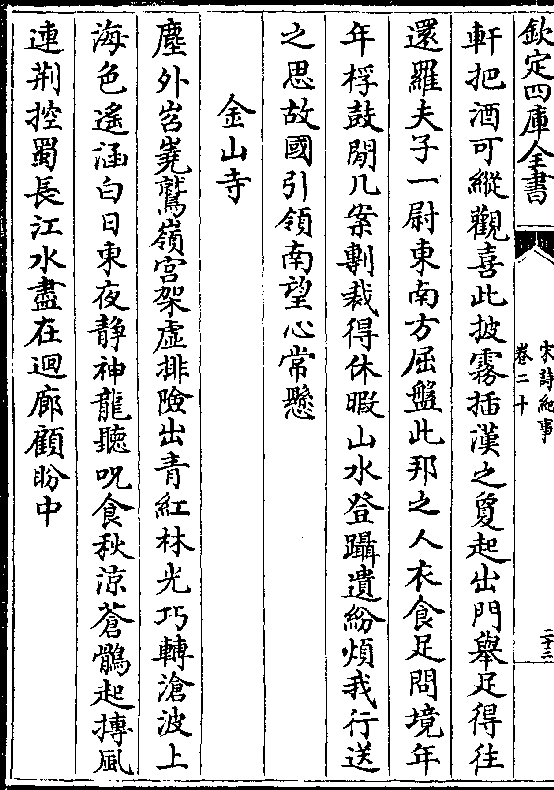 欽定四庫全書
宋詩紀事
卷二十
二十三
軒把酒可縱觀喜此披霧插漢之質起出門舉足得往
還羅夫子一尉東南方屈盤此邦之人衣食足問境年
年桴鼓閒几案剸裁得休暇山水登躡遺紛煩我行送
之思故國引領南望心常懸
金山寺
塵外岧嶤鷲嶺宫架虛排險出青紅林光巧轉滄波上
海色遙涵白日東夜靜神龍聽呪食秋涼蒼鶻起摶風
連荆控蜀長江水盡在迴廊顧盼中